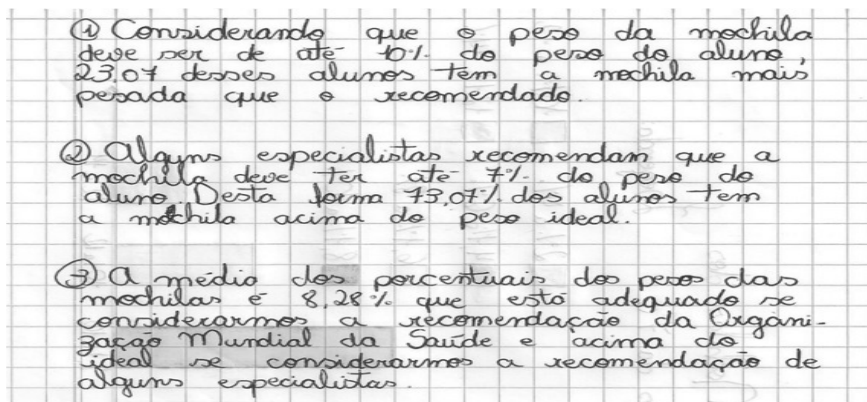 ① Considerando que o peso da mochila
deve ser de até 10% do peso do aluno,
23,07 desses alunos têm a mochila mais
pesada que o recomendado.
② Alguns especialistas recomendam que a
mochila deve ter até 7% do peso do
aluno. Desta forma 73,07% dos alunos tem
a mochila acima do peso ideal.
③ A média dos porcentuais dos pesos das
mochilas é 8,28% que está adequado se
considerarmos a recomendação da Organi-
zação Mundial da Saúde e acima do
ideal se considerarmos a recomendação de
alguns especialistas.